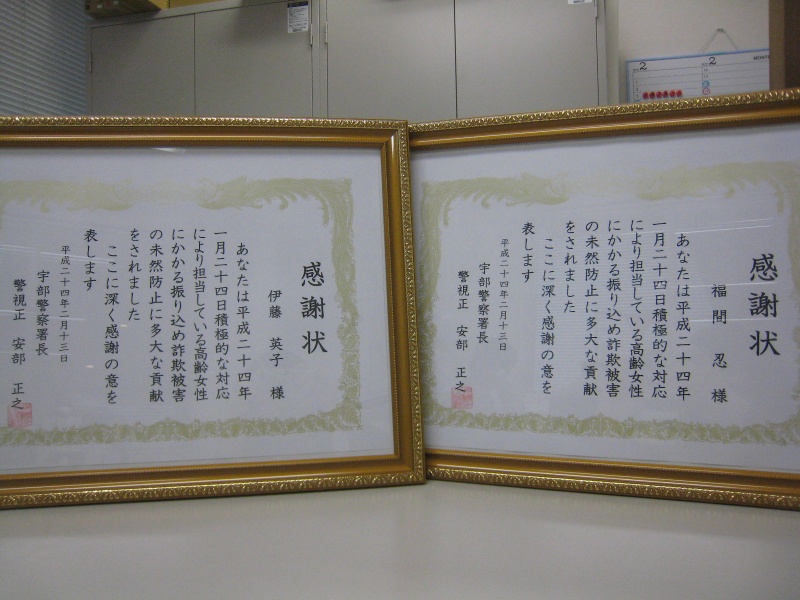 感謝状
福間 忍 様
あなたは平成二十四年
一月二十四日積極的な対応
により担当している高齢女性
にかかる振り込め詐欺被害
の未然防止に多大な貢献
をされました
ここに深く感謝の意を
表します
平成二十四年二月十三日
宇部警察署長
警視正 安部 正之
感謝状
伊藤 英子 様
あなたは平成二十四年
一月二十四日積極的な対応
により担当している高齢女性
にかかる振り込め詐欺被害
の未然防止に多大な貢献
をされました
ここに深く感謝の意を
表します
平成二十四年二月十三日
宇部警察署長
警視正 安部 正之
2
2
MONTH